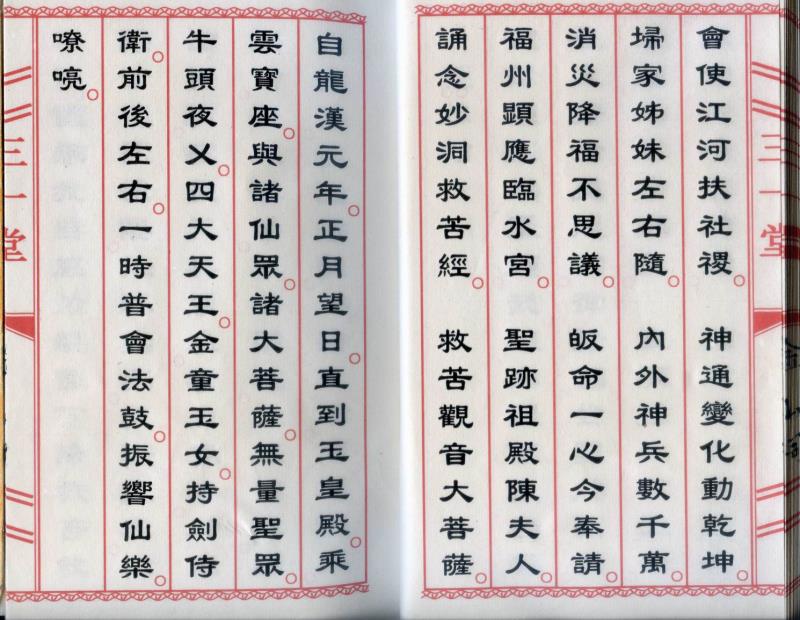 會使江河扶社禝。神通變化動乾坤。
埽家姊妹左右隨。內外神兵數千萬。
消災降福不思議。皈命一心今奉請。
福州顯應臨水宮。聖跡祖殿陳夫人。
誦念妙洞救苦經。救苦觀音大菩薩。
自龍漢元年。正月望日。直到玉皇殿。乘
雲寶座。與諸仙眾。諸大菩薩。無量聖眾。
牛頭夜乂。四大天王。金童玉女。持劍侍
衛。前後左右。一時普會法鼓。振響仙樂。
嘹喨。
三一堂
三一堂